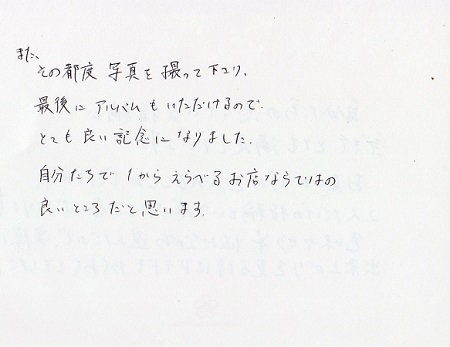 また、
その都度 写真を撮って下さり、
最後に アルバムも いただけるので、
とても良い記念になりました。
自分たちで 1から えらべる お店ならではの
良いところだと思います。